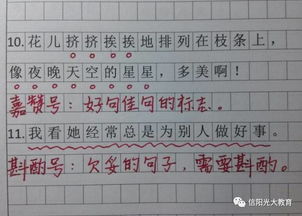 10.花儿挤挤挨挨地排列在枝条上,
像夜晚天空的星星,多美啊!
嘉赞号:好句佳句的标志。
11.我看她经常总是为别人做好事。
斟酌号:欠妥的句子,需要斟酌。
信阳光大教育